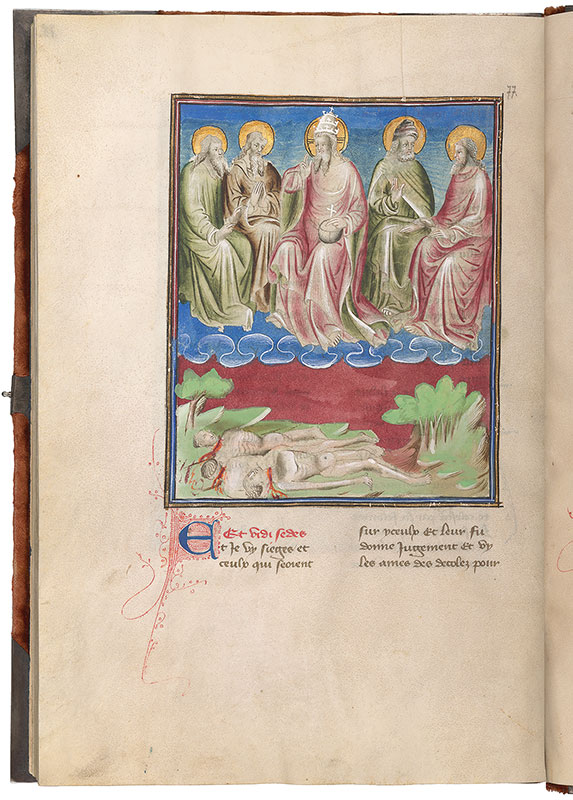 77
Et vidi sedes
Et Je vy sieges et
ceulx qui seoient
sur yceulx Et leur fu
donne Jugement Et vy
les ames des decolez pour